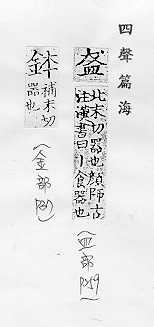 四聲篇海
盋
北末切器也顏師古
注漢書曰丨食器也
(皿部 P59)
鉢
補末切
器也
(金部